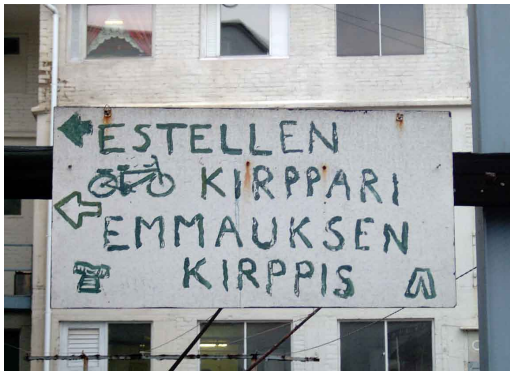 ESTELLEN
KIRPPARI
EMMAUKSEN
KIRPPIS